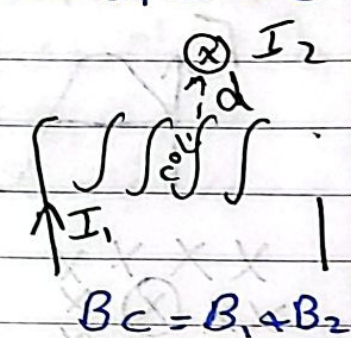 I₂
d
c
I₁
Bc = B₁ + B₂